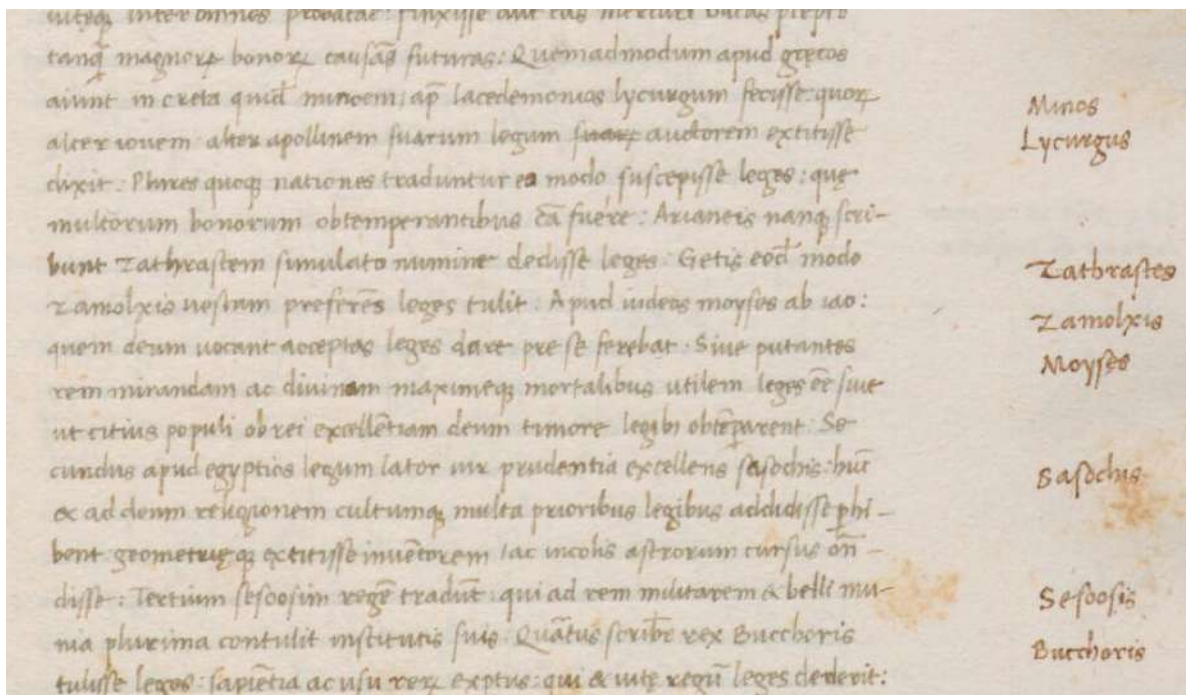 uiteq; inter omnes probatae: finxisse aut eas mercurii datas
tanq̃ magnorꝝ bonorꝝ causas̃ futuras: Quemadmodum apud gręcos
aiunt in creta quid̃ minoem; ap̃ lacedemonios lycurgum fecisse: quorꝝ
alter iouem alter apollinem suarum legum suarꝝ auctorem extitisse
dixit: Plures quoq; nationes traduntur eo modo suscepisse leges: quę
multorum bonorum obtemperantibus cã fuere: Arianeis nanq; scri-
bunt Zathrastem simulato numine dedisse leges: Getis eod̃ modo
Zamolxis uestam preferẽs leges tulit: Apud iudeos moyses ab iao:
quem deum uocant acceptas leges dare pre se ferebat: Siue putantes
rem mirandam ac diuinam maximeq; mortalibus utilem leges eẽ siue
ut citius populi ob rei excellẽtiam deum timore legibꝫ obtẽperarent: Se
cundus apud egyptios legum lator uir prudentia excellens sasochis: hũc
& ad deum religionem cultumq; multa prioribus legibus addidisse ꝑhi-
bent geometrięq; extitisse inuẽtorem: ac incolis astrorum cursus oñ-
disse: Tertium sesoosim regẽ tradũt: qui ad rem militarem & belli mu-
nia plurima contulit institutis suis: Quãtus scribit̃ rex Bucchoris
tulisse leges: sapiẽtia ac usu rerꝝ exptus: qui & uitę regũ leges dederit:
Minos
Lycurgus
Zathrastes
Zamolxis
Moyses
Sasochis
Sesoosis
Bucchoris